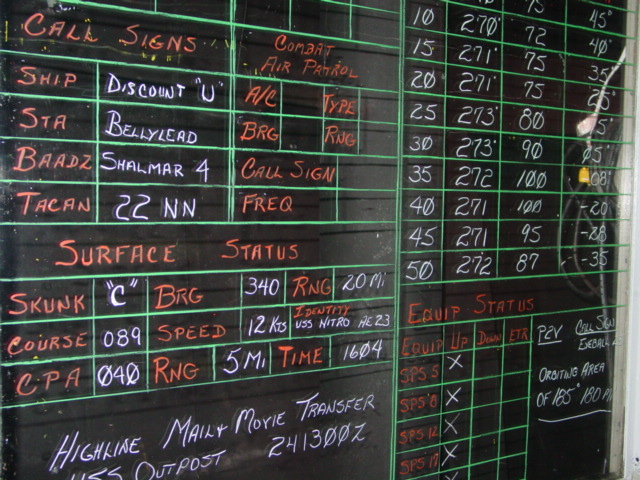 CALL SIGNS
COMBAT
AIR PATROL
SHIP DISCOUNT "U" A/C TYPE
STA BELLYLEAD BRG RNG
BAADZ SHALMAR 4 CALL SIGN
TACAN 22 NN FREQ
SURFACE STATUS
SKUNK "C" BRG 340 RNG 20 MI
COURSE 089 SPEED 12 KTS IDENTITY USS NITRO AE 23
CPA 040 RNG 5 MI TIME 1604
HIGHLINE MAIL & MOVIE TRANSFER
USS OUTPOST 241300Z
75 45°
10 270° 72 40°
15 271° 75 35
20 271° 75
25 273° 80
30 273° 90 05°
35 272 100 -08
40 271 100 -20
45 271 95 -28
50 272 87 -35
EQUIP STATUS
EQUIP UP DOWN ETR
SPS 5 X
SPS 8 X
SPS 12 X
SPS 17 X
X
P2V CALL SIGN
EYEBALL
ORBITING AREA
OF 185° 180 MI